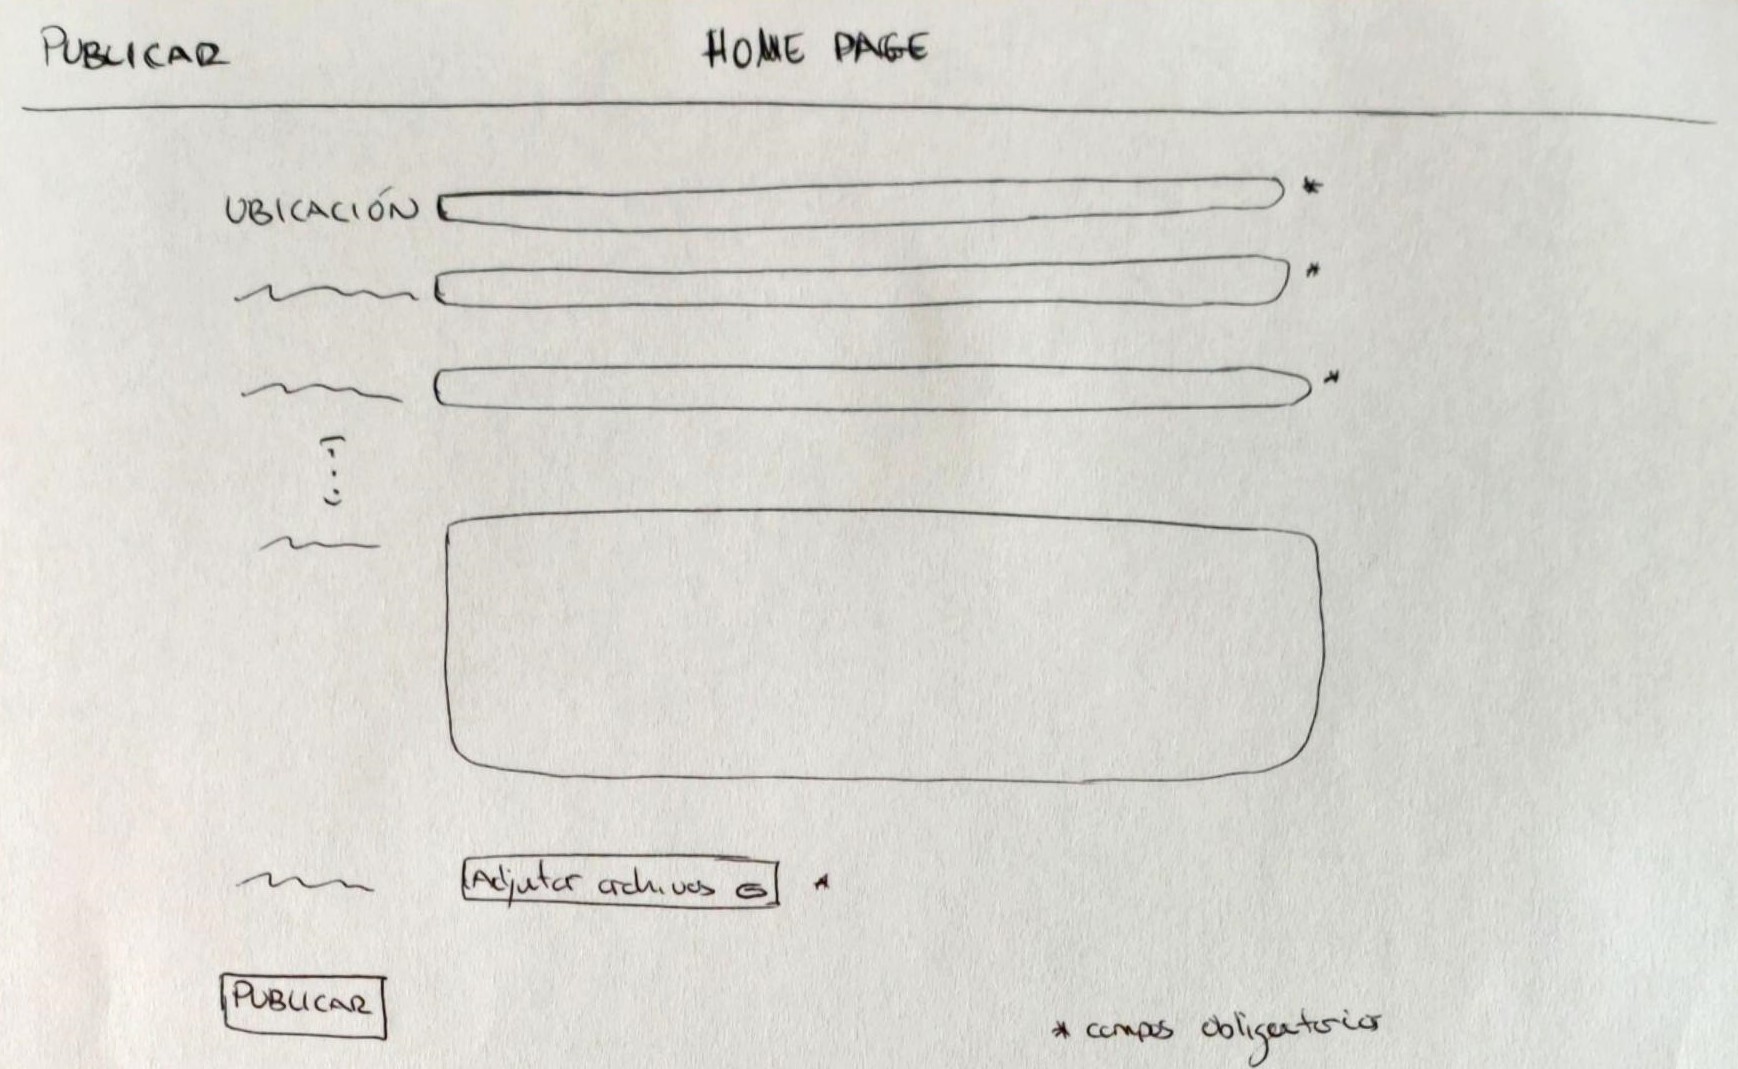 PUBLICAR HOME PAGE
UBICACIÓN *
*
*
(...)
Adjutar archivos *
PUBLICAR
* campos obligatorios